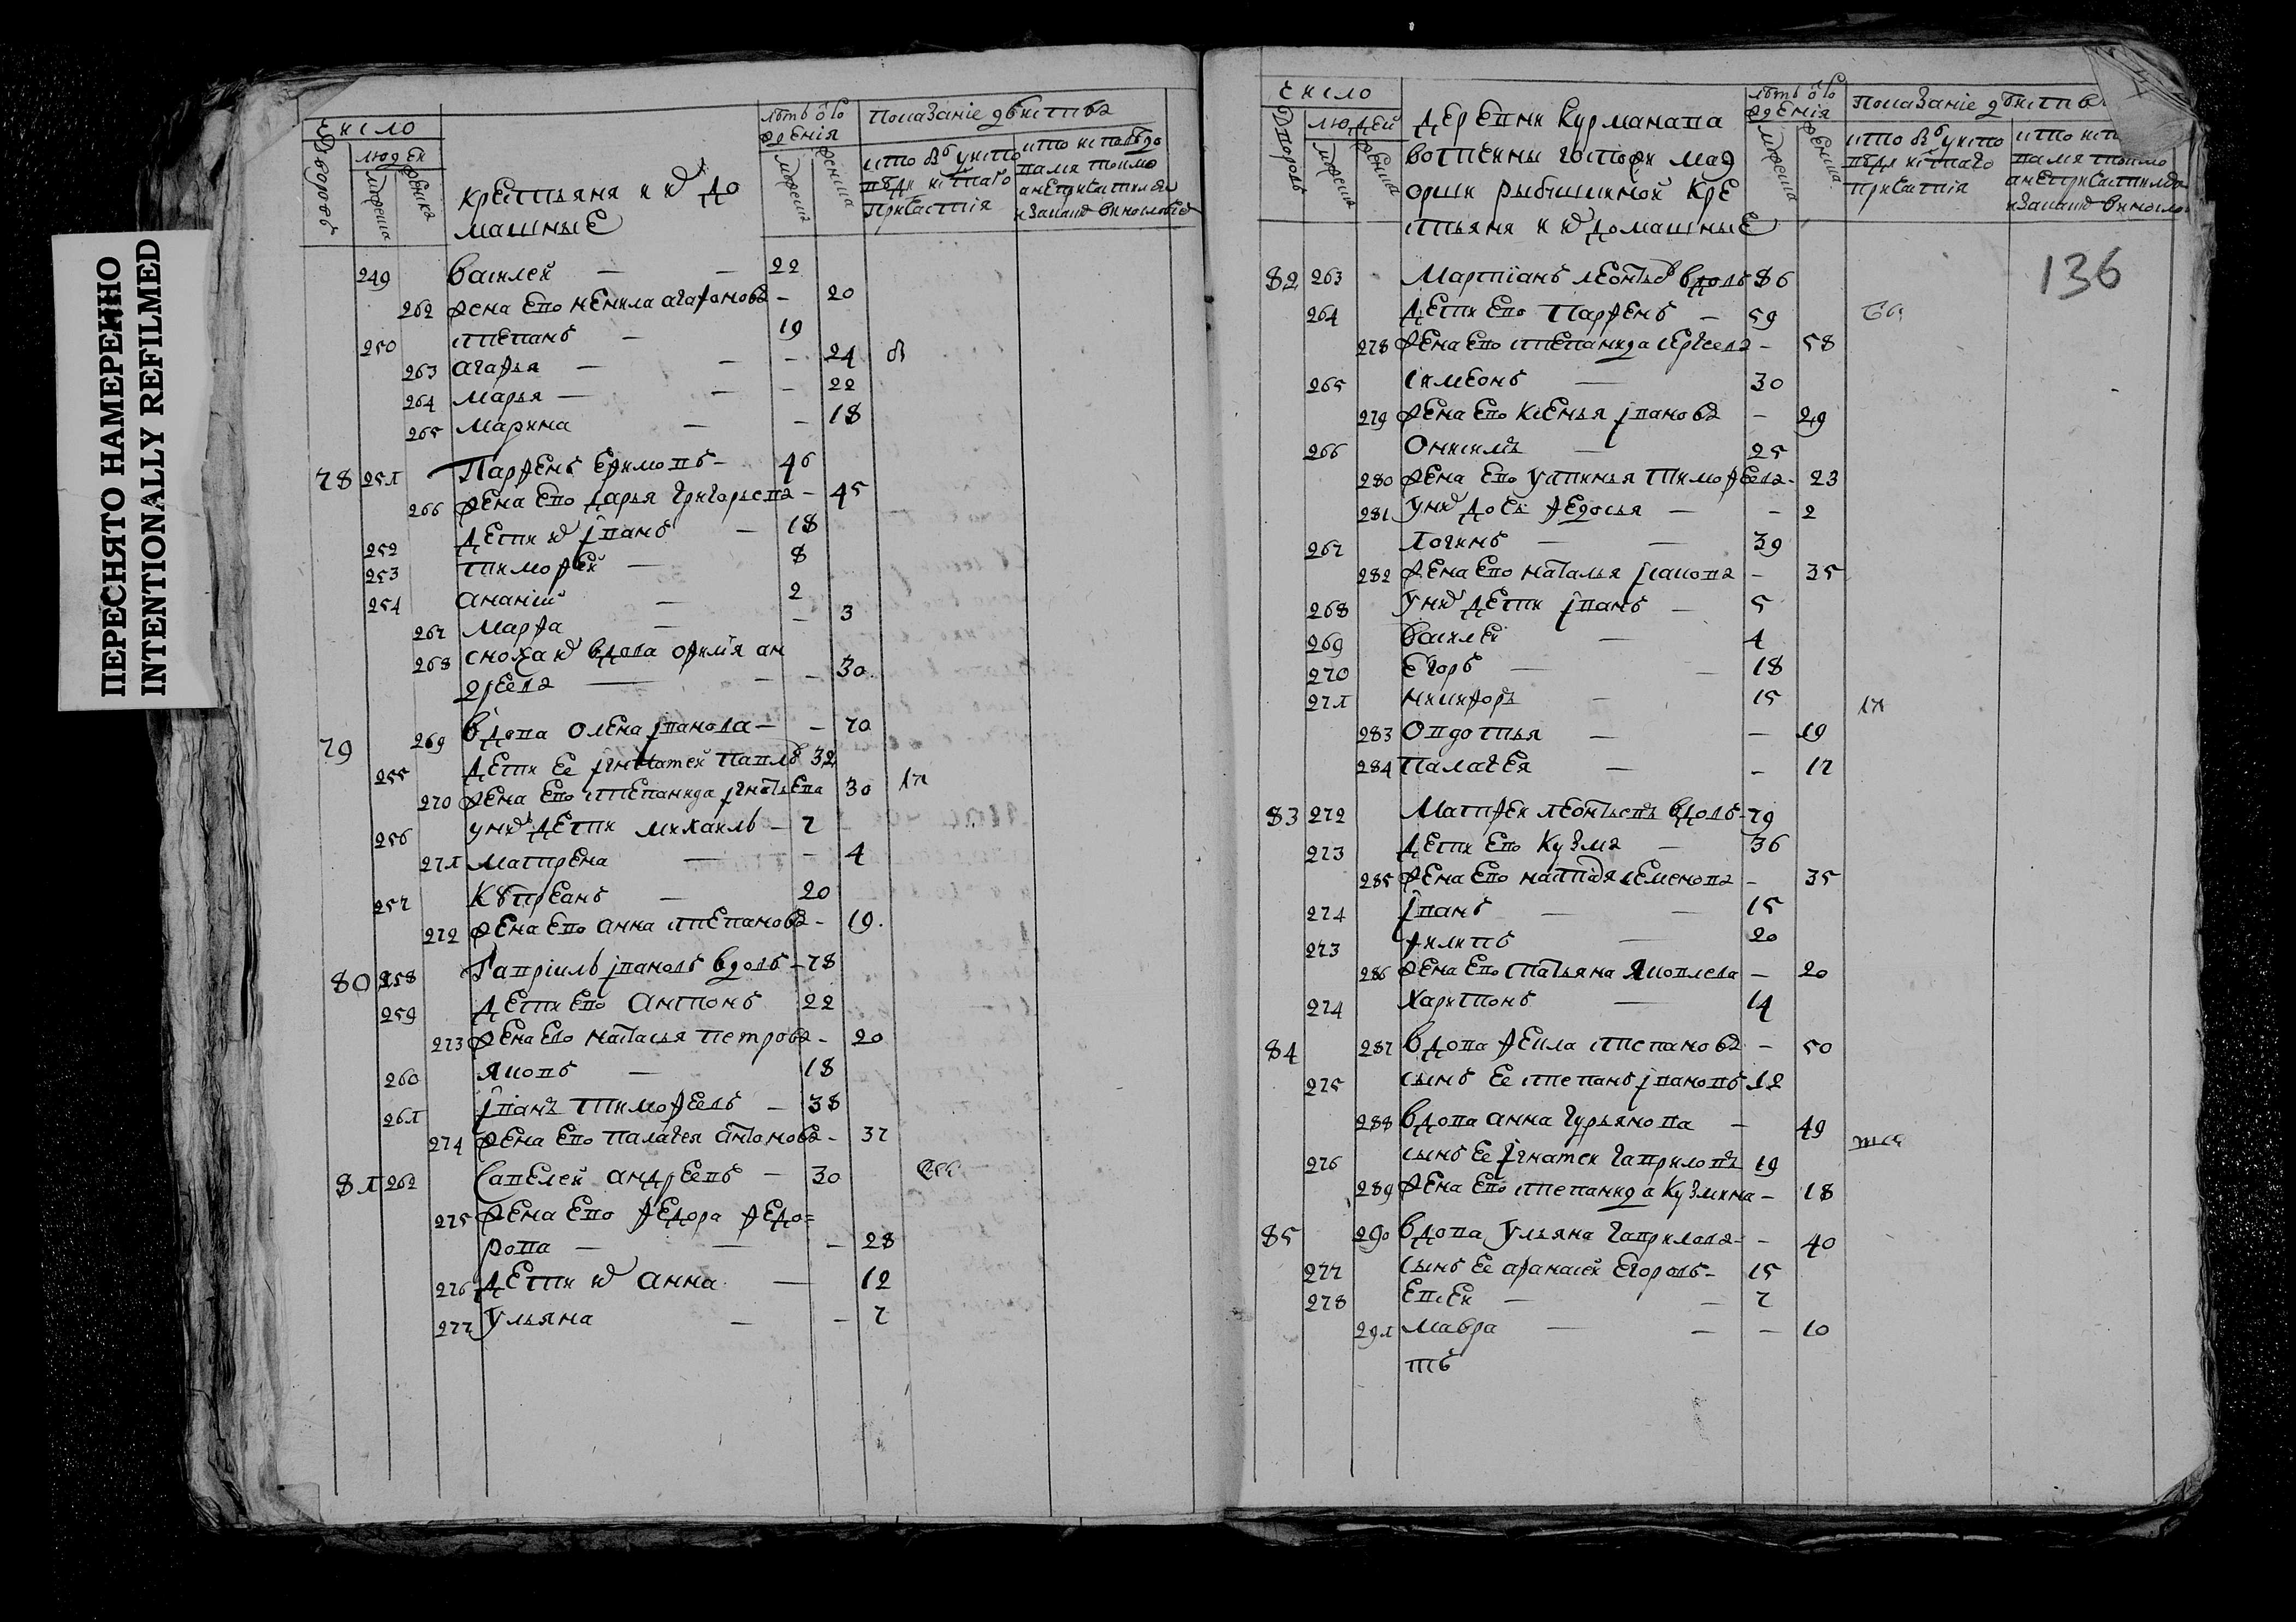 ПЕРЕСНЯТО НАМЕРЕННО
INTENTIONALLY REFILMED
число
дворовъ
людей
крестьяня и их до
машные
249 Василей — — 22
262 жена ево ненила агафонова - 20
250 степанъ — 19
263 агафья — — 24
264 марья — — 22
265 марина — — 18
78 251 Парфенъ ефимовъ - 46
266 жена ево дарья григорьева - 45
252 дети их іванъ — 18
253 тимофей — 8
254 ананій — 2
267 марфа — — 3
268 сноха их вдова афимія ан
дреева — — 30
79 269 вдова олена іванова — — 70
255 дети ее ігнатей павловъ 32
270 жена ево степанида ігнатьева 30
256 у них дети михаилъ — 7
271 матрена — — 4
257 — 20
272 жена ево анна степанова - 19
80 258 Гавріилъ івановъ вдовъ - 78
259 дети ево антонъ 22
273 жена ево наталья петрова - 20
260 яковъ — 18
261 іванъ тимофеевъ — 38
274 жена ево палагея антонова - 37
81 262 Савелей андреевъ — 30
275 жена ево федора федо=
рова — — 28
276 дети их анна — 12
277 ульяна — — 7
число
людей
деревни Курманава
вотчины госпожи маэ
орши рыбишкиной кре
стьяня и их домашные
136
82 263 Мартіанъ леонтьевъ вдовъ 86
264 дети ево парфенъ — 59
278 жена ево степанида сергеева - 58
265 симеонъ — 30
279 жена ево ксенья іванова — 29
266 онисимъ — 25
280 жена ево устинья тимофеева - 23
281 у них дочь федосья — - 2
267 логинъ — — 39
282 жена ево наталья исакова - 35
268 у них дети іванъ — 5
269 василей — 4
270 егоръ — — 18
271 никифоръ — 15
283 овдотья — — 19
284 палагея — - 17
83 272 Матфей леонтьевъ вдовъ - 79
273 дети ево кузма — 36
285 жена ево семенова - 35
274 іванъ — — 15
273 филипъ — 20
286 жена ево татьяна яковлева — 20
274 харитонъ — 14
84 287 вдова фекла степанова — 50
275 сынъ ее степанъ івановъ 12
288 вдова анна гурьянова — 49
276 сынъ ее ігнатей гавриловъ 19
289 жена ево степанида кузмина — 18
85 290 вдова ульяна гаврилова - - 40
277 сынъ ее афанасей егоровъ - 15
278 евсей — — 7
291 мавра — — — 10